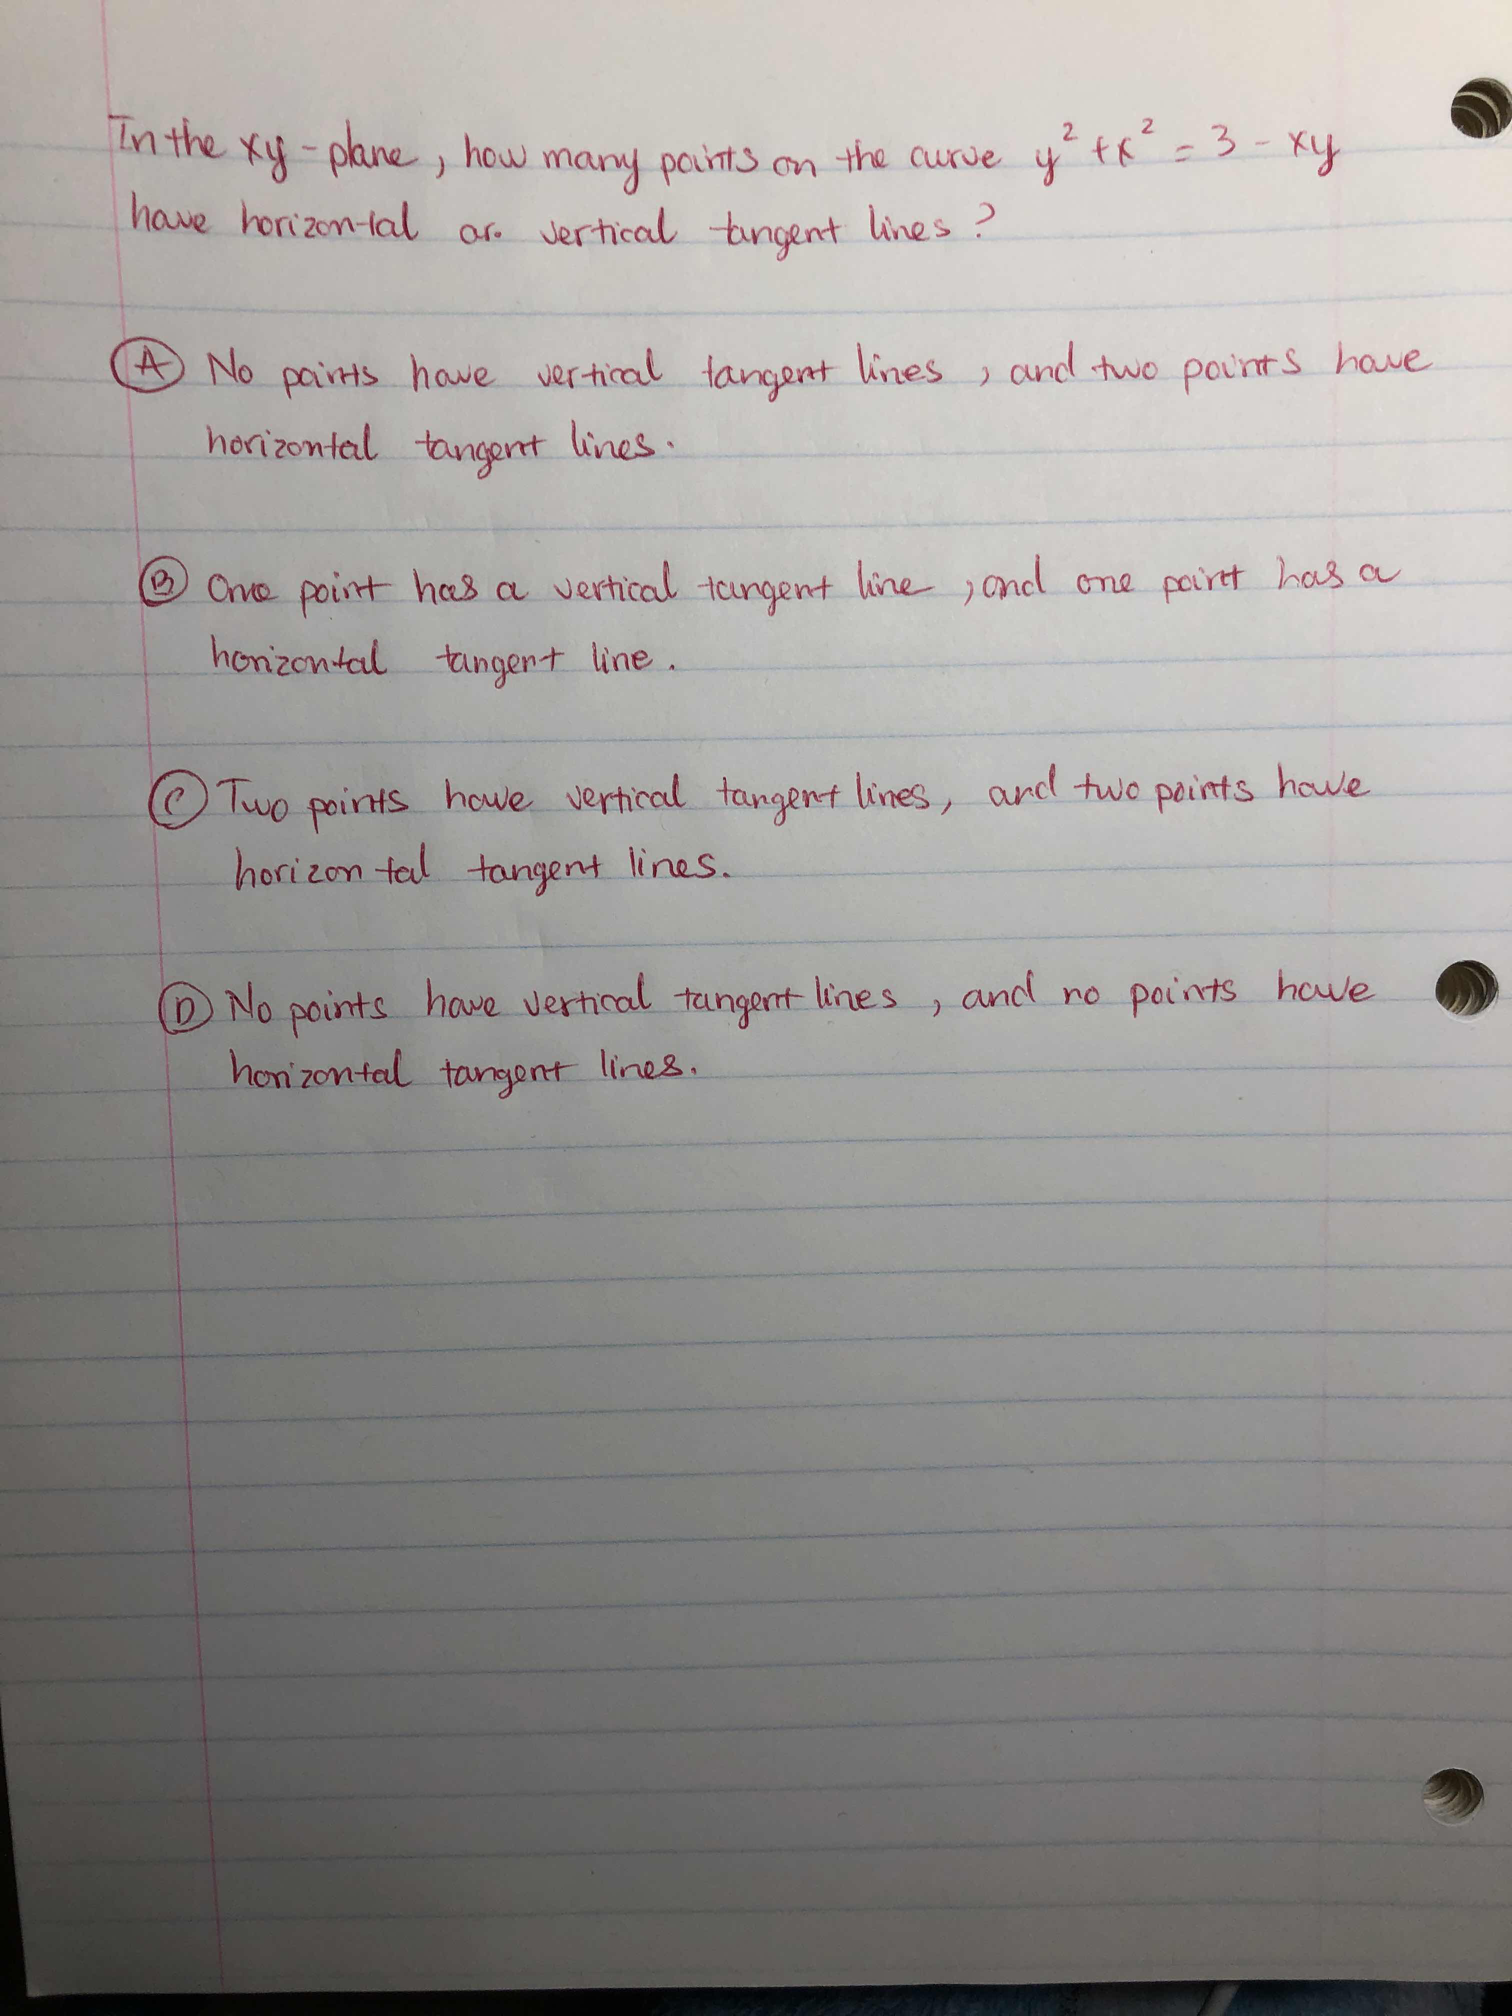 In the xy-plane, how many points on the curve y² + x² = 3 - xy
have horizontal or vertical tangent lines?
Ⓐ No points have vertical tangent lines, and two points have
horizontal tangent lines.
Ⓑ One point has a vertical tangent line, and one point has a
horizontal tangent line.
Ⓒ Two points have vertical tangent lines, and two points have
horizontal tangent lines.
Ⓓ No points have vertical tangent lines, and no points have
horizontal tangent lines.